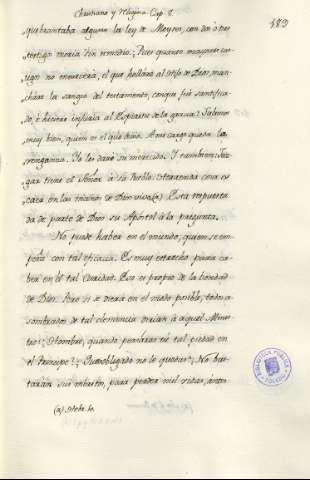 Christiano y Virgino Cap. 8.
183
quebrantaba alguno la ley de Moyses, con dos ò tres
testigos moria sin remedio; Pues quanto mayores cas-
tigos no merecerá, el que hollára al Hijo de Dios, man-
chára la sangre del testamento, conque fué santifica-
do, è hiciera injuria al Espiritu de la gracia? Sabemos
muy bien, quien es el que dixo. A mi cargo queda la
venganza. Yo les daré su merecido. Y tambien: Juz-
gar tiene el Señor à su Pueblo. Horrenda cosa es
caer en las manos de Dios vivo(a) Esta respuesta
da de parte de Dios su Apostol à la pregunta.
No puede haber en el mundo, quien se em-
peñe con tal eficacia. Es muy estrecho para ca-
ber en èl tal Caridad. Eso es propio de la bondad
de Dios. Pero si se diera en el modo posible, todos a-
sombrados de tal clemencia dirian à aquel Minis-
tro: Hombre, quando pensaras tú tal piedad en
el Principe? Quan obligado no le quedas? No bas-
tarán sus infortos, para perder mil vidas, antes
(a) Hebr. 10.
BIBLIOTECA PUBLICA
TOLEDO